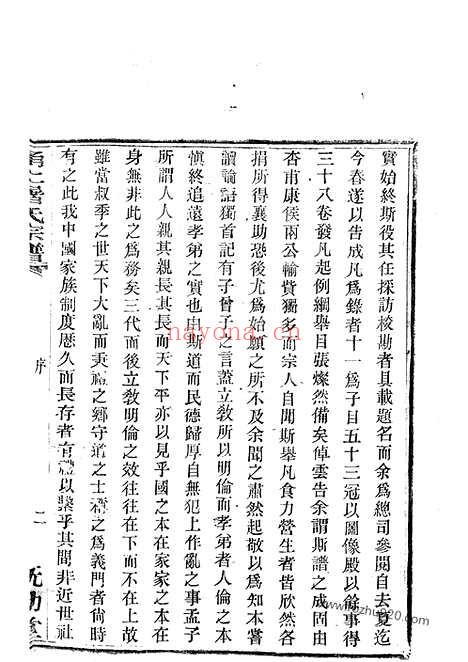 實始終斯役其任採訪校勘者具載題名而余爲總司參閱自去夏迄
今春遂以告成凡爲錄者十一爲子目五十三冠以圖像殿以餘事得
三十八卷發凡起例綱舉目張燦然備矣倬雲告余謂斯譜之成固由
杏甫康侯兩公輸貲獨多而宗人自聞斯舉凡食力營生者皆欣然各
捐所得襄助恐後尤爲始願之所不及余聞之肅然起敬以爲知本嘗
讀論語獨首記有子曾子之言蓋立敎所以明倫而孝弟者人倫之本
愼終追遠孝弟之實也由斯道而民德歸厚自無犯上作亂之事孟子
所謂人人親其親長其長而天下平亦以見乎國之本在家家之本在
身無非此之爲務矣三代而後立敎明倫之效往往在下而不在上故
雖當叔季之世天下大亂而秉禮之鄕守道之士稱之爲義門者尙時
有之此我中國家族制度歷久而長存者有禮以繫乎其間非近世社
甬上屠氏宗譜
序
二
旣勤堂
nayona.cn